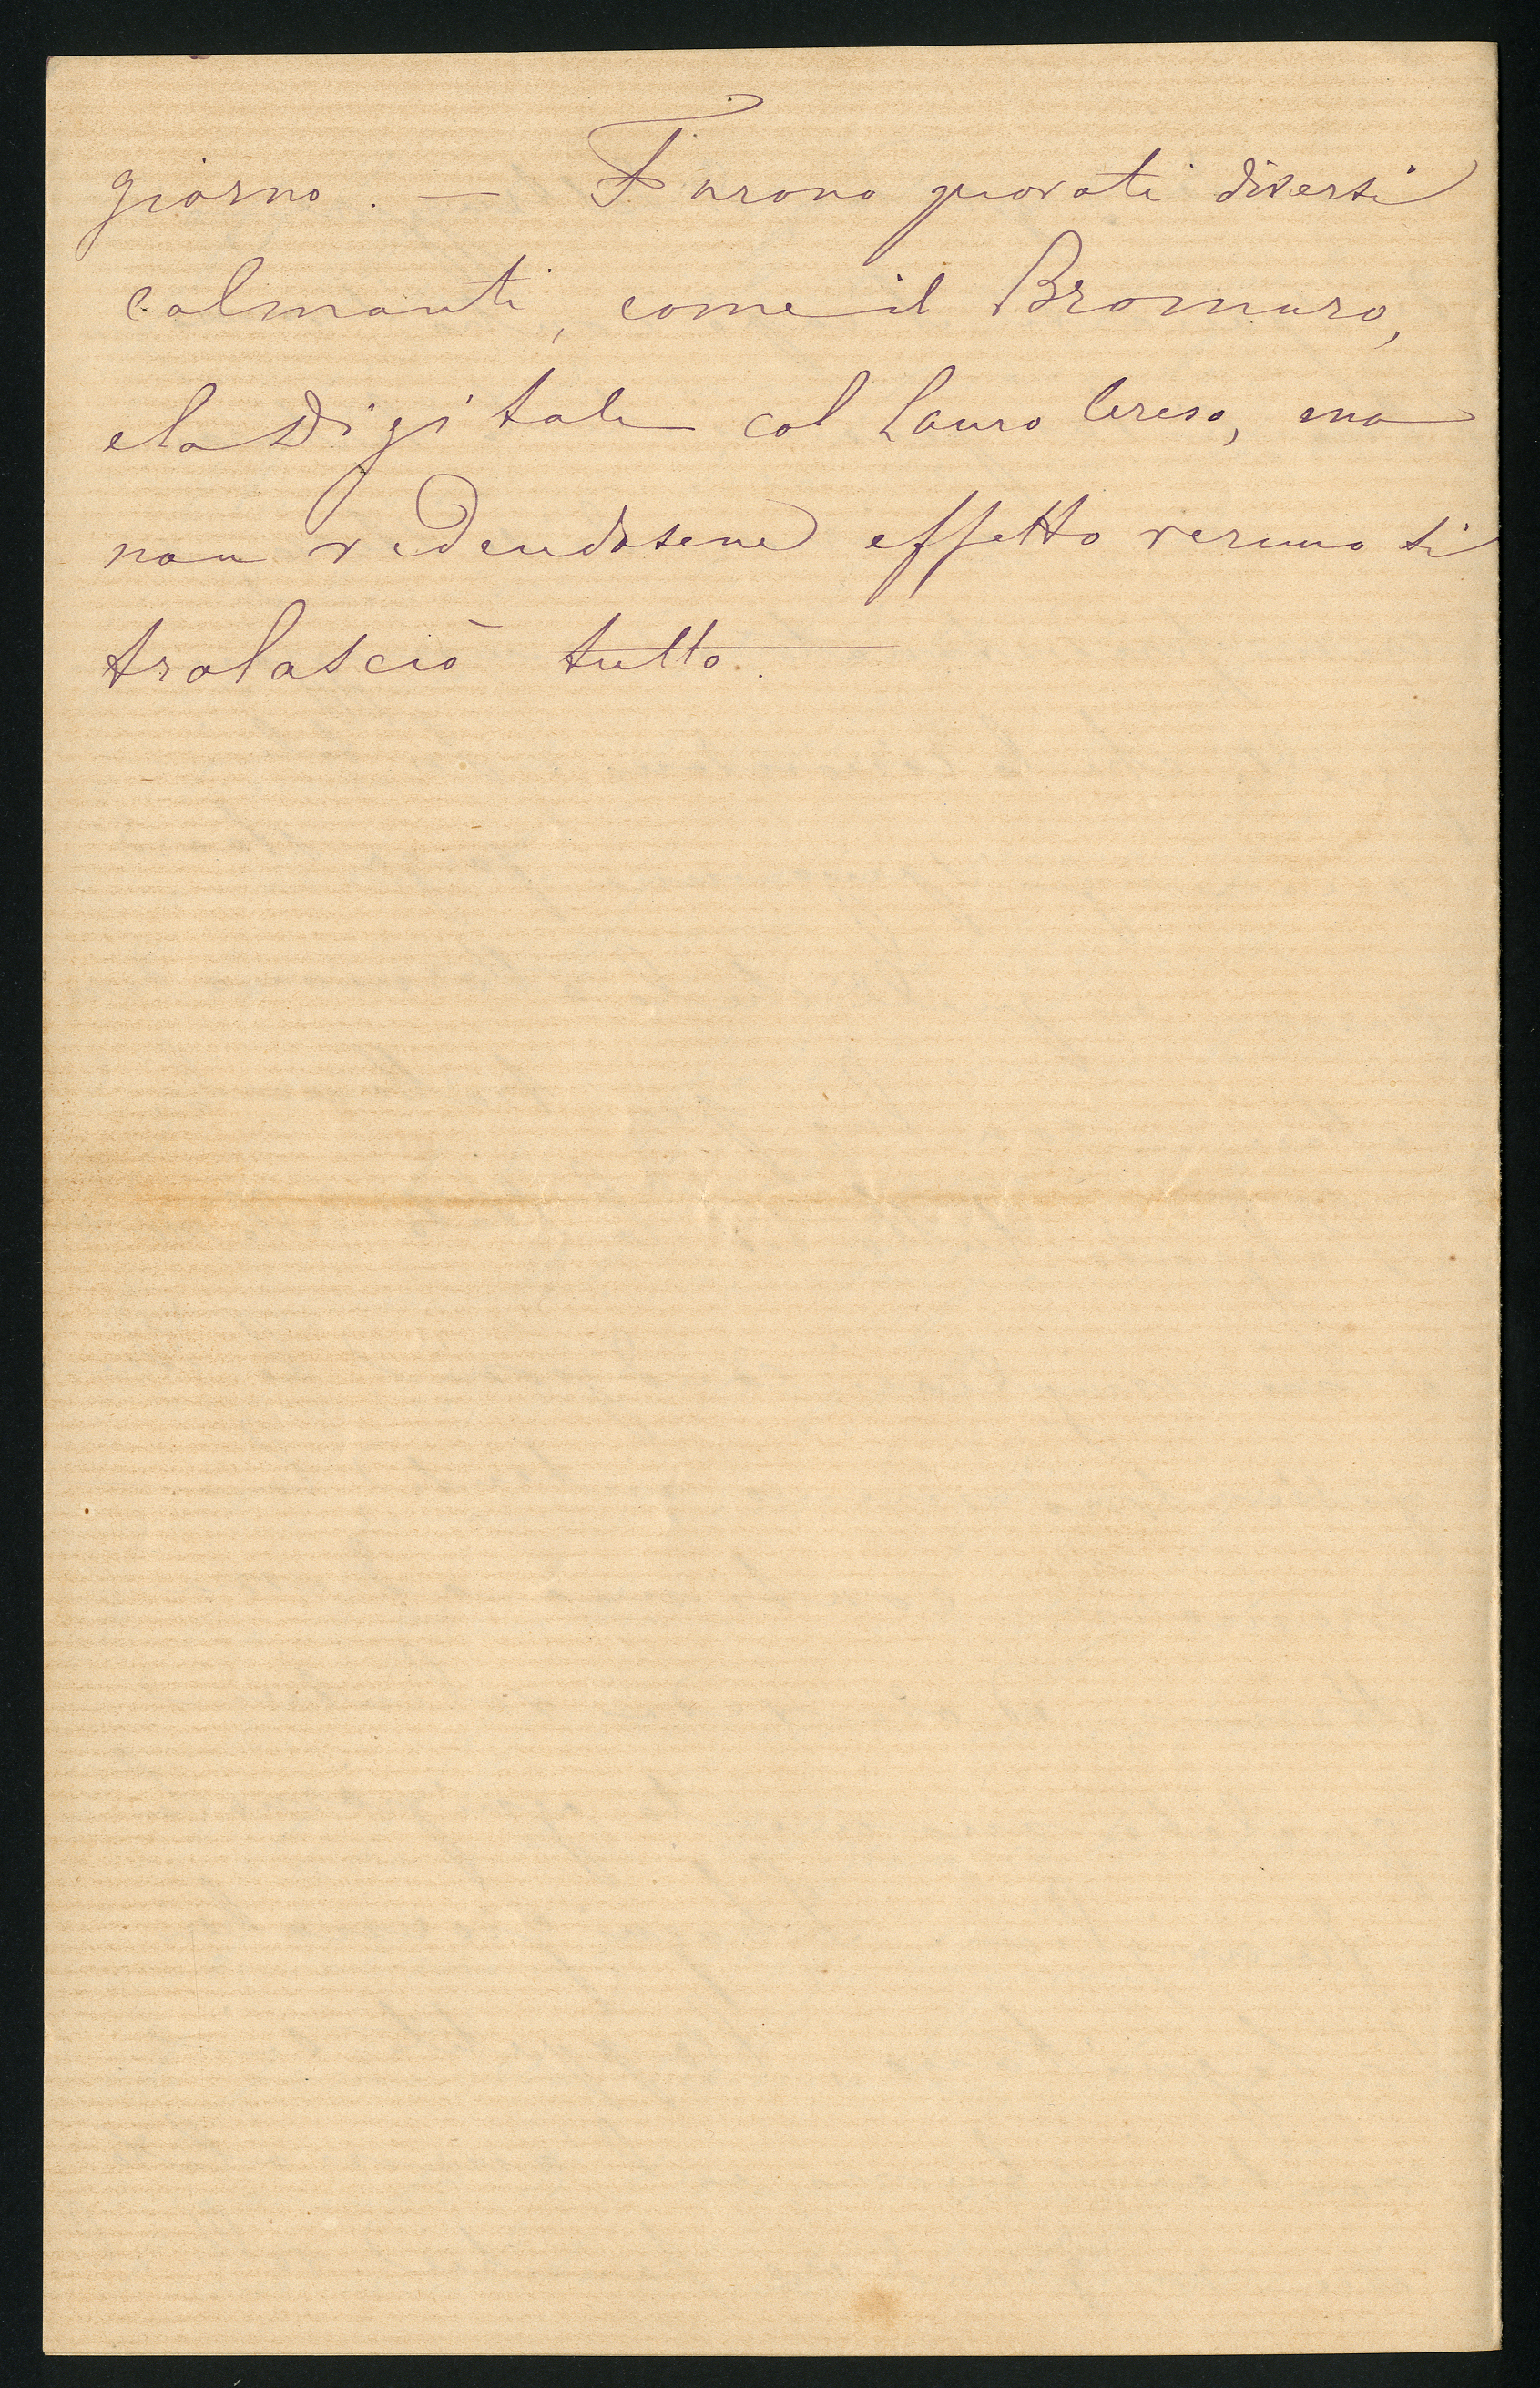 giorno. — Furono provati diversi
calmanti, come il Bromuro,
e la Digitale col Lauro Ceraso, ma
non vedendosene effetto veruno si
tralasciò tutto.